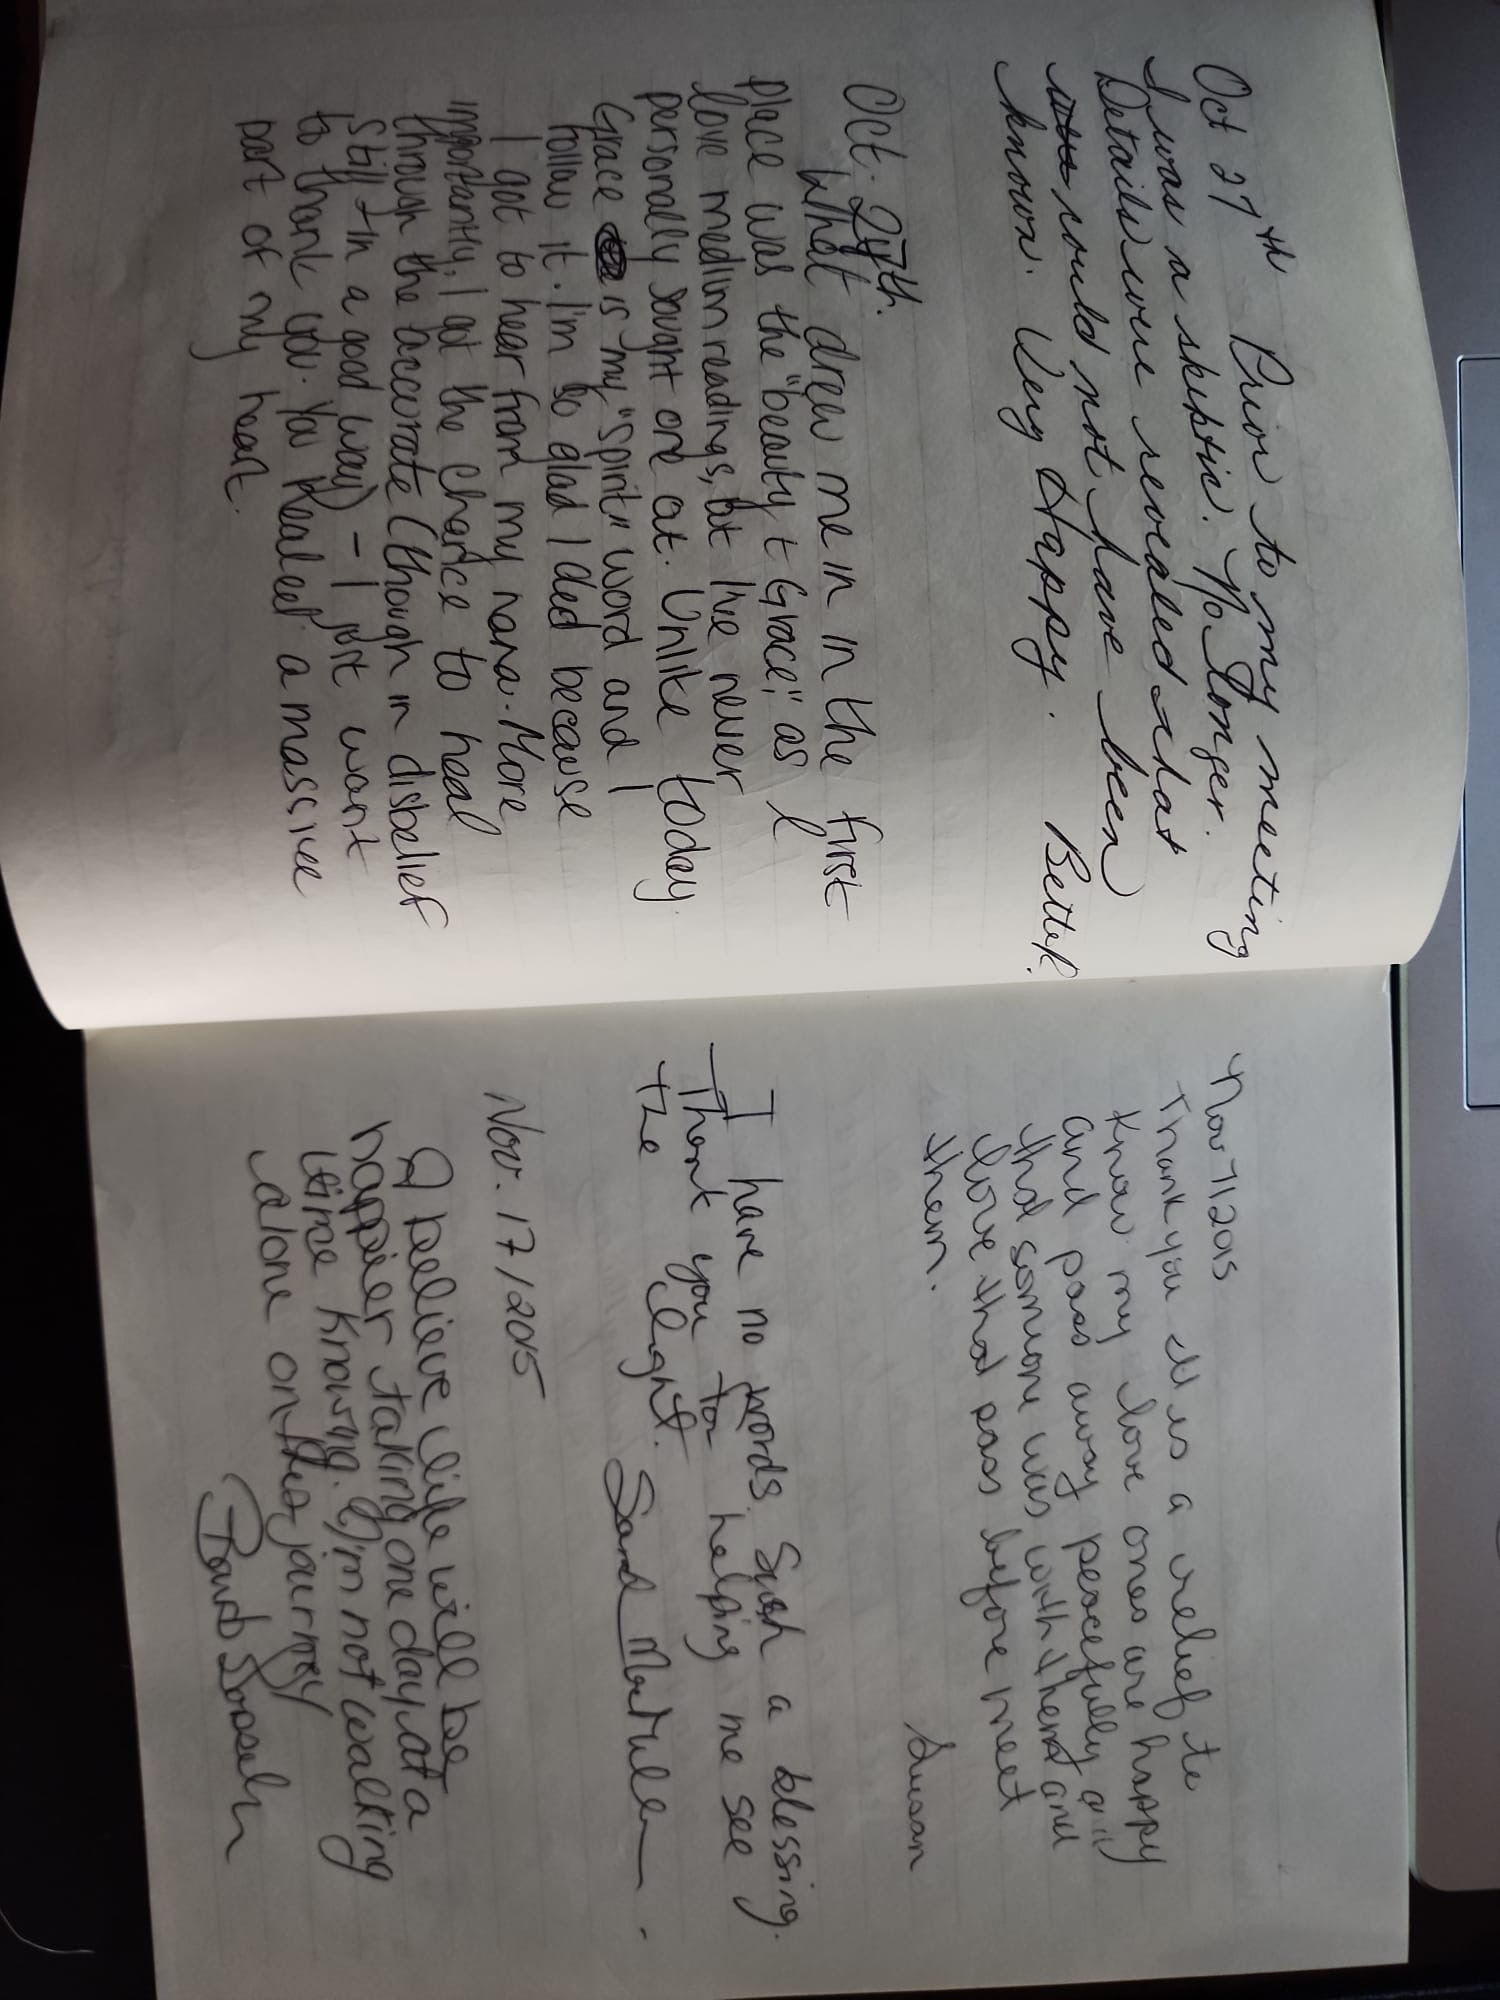 Oct 27th Prior to my meeting
I was a skeptic. No Longer.
Details were revealed that
would not have been
known. Very Happy. Better.
Oct. 27th.
What drew me in in the first
place was the "beauty + Grace," as I
love medium readings, but I've never
personally sought one out. Unlike today.
Grace is my "Spirit" word and I
follow it. I'm so glad I did because
I got to hear from my nana. More
importantly, I got the chance to heal
through the accurate (though in disbelief
still +in a good way) - I just want
to thank you. You Healed a massive
part of my heart.
Nov 7/2015
Thank you it is a relief to
know my love ones are happy
and pass away peacefully
that someone was with them and
love that pass before meet
them.
Susan
I have no words. Such a blessing.
Thank you for helping me see
the light.
Nov. 17/2015
I believe life will be
happier taking one day at a
time knowing I'm not walking
alone on this journey